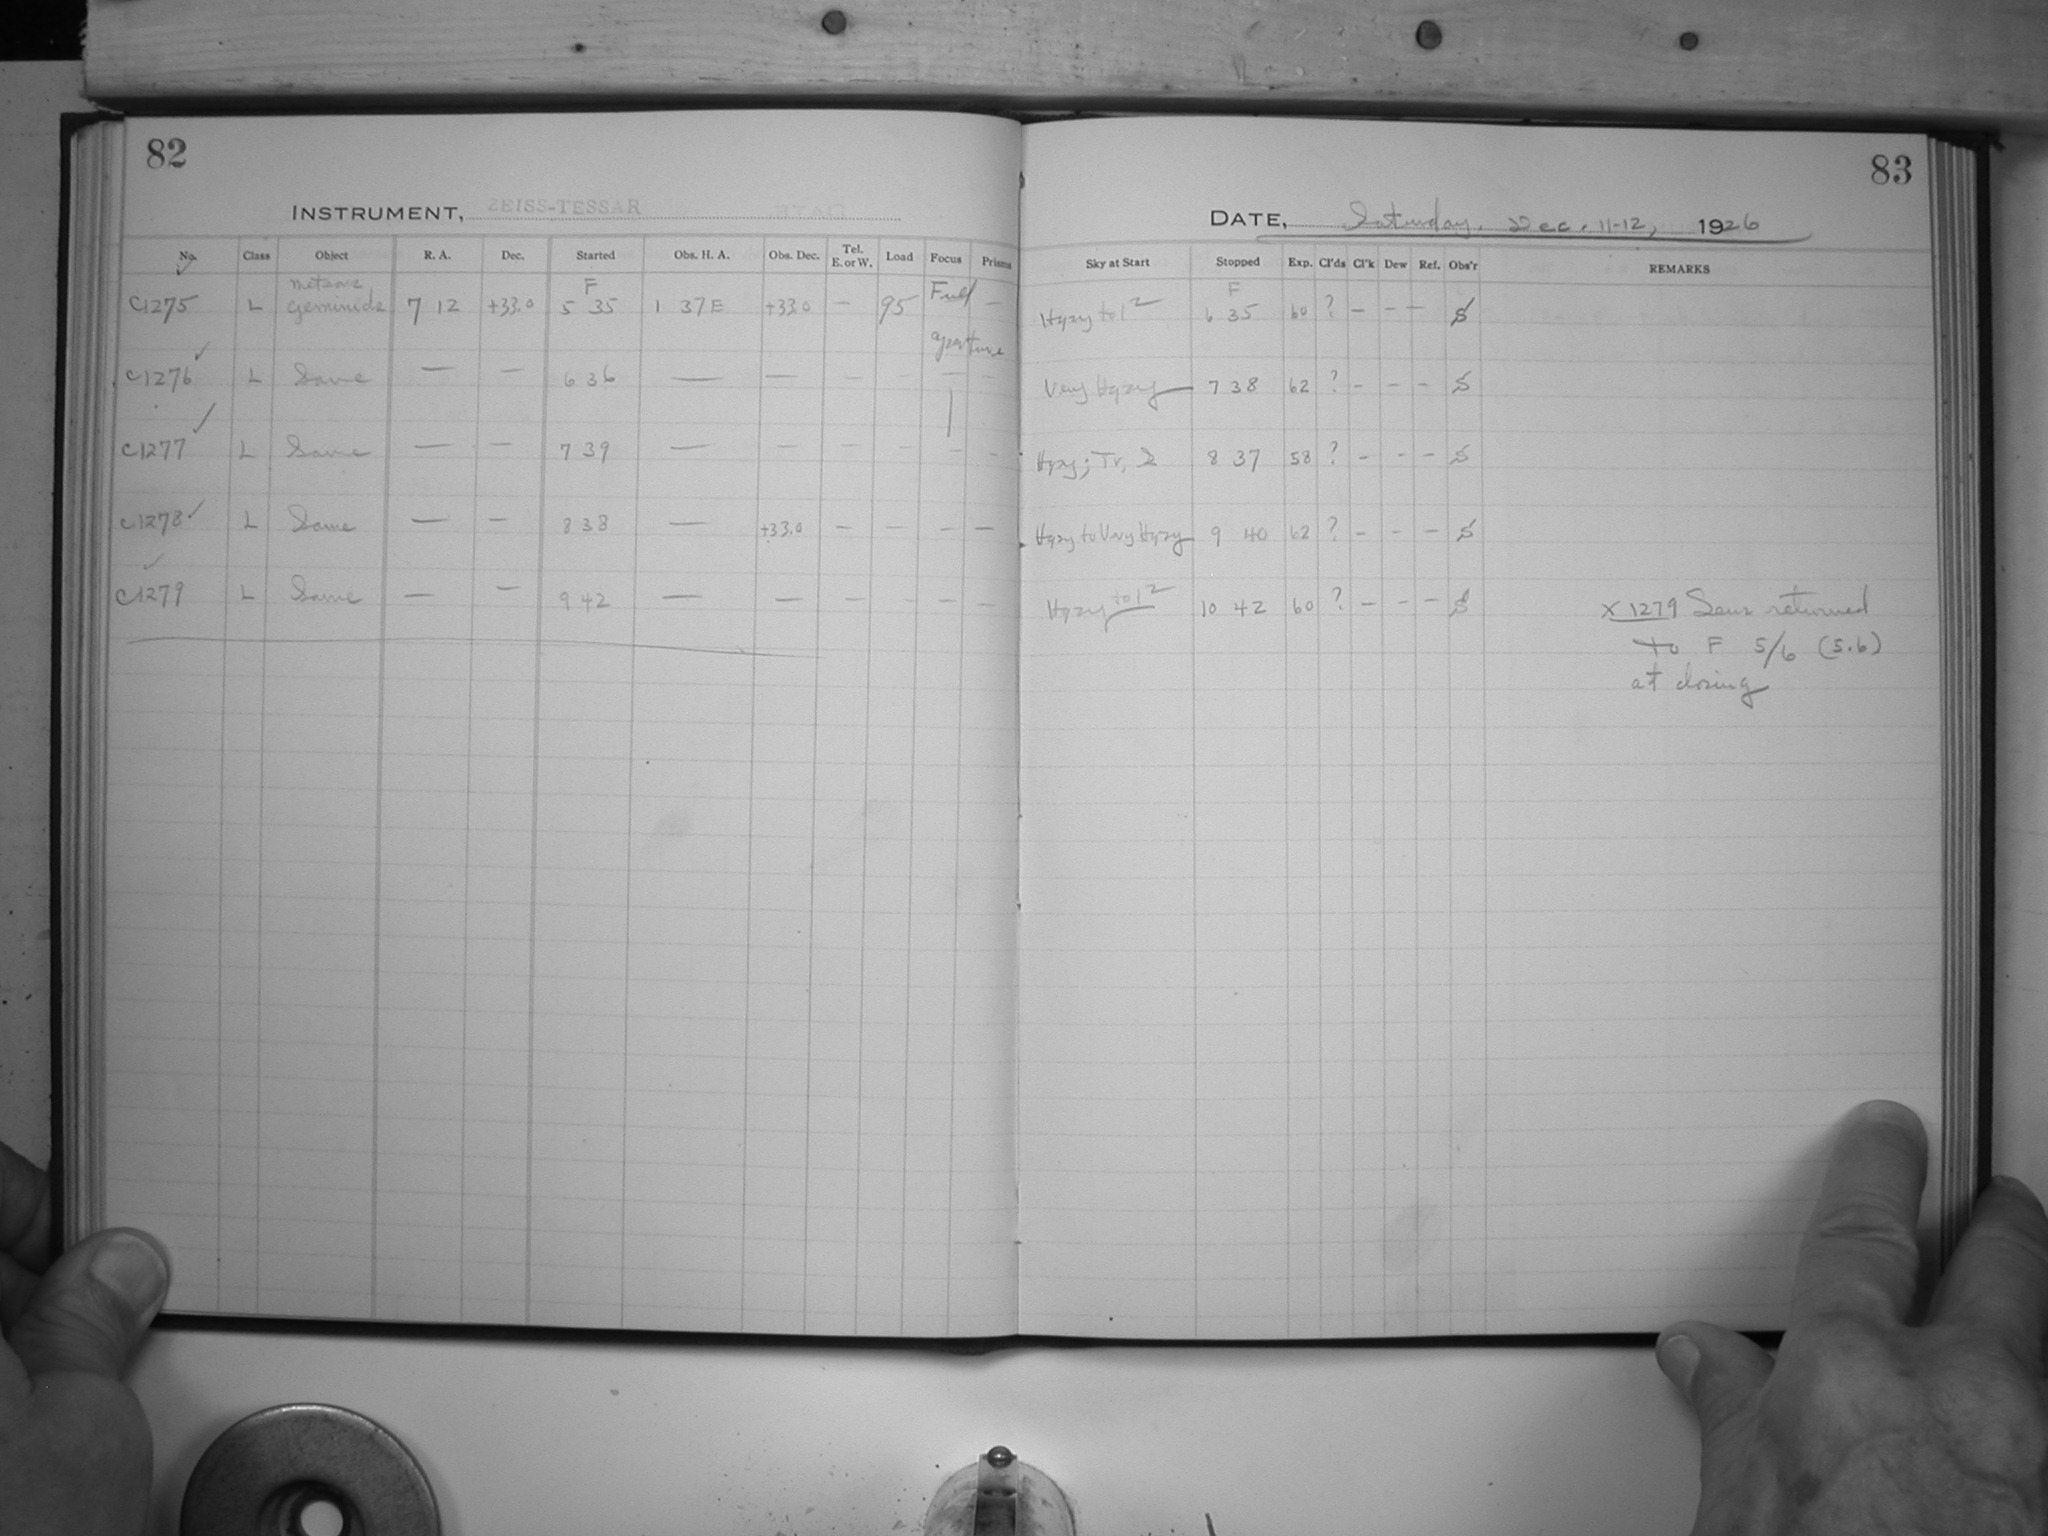 82
INSTRUMENT, ZEISS-TESSAR
No. Class Object R. A. Dec. Started Obs. H. A. Obs. Dec. Tel. E. or W. Load Focus Prisms
meteors F
C1275 L Geminids 7 12 +33.0 5 35 1 37 E +33.0 — 95 Full —
aperture
C1276 L Same — — 6 36 — — — — — —
C1277 L Same — — 7 39 — — — — — —
C1278 L Same — — 8 38 — +33.0 — — — —
C1279 L Same — — 9 42 — — — — — —
83
DATE, Saturday, Dec. 11-12, 1926
Sky at Start Stopped Exp. Cl'ds Cl'k Dew Ref. Obs'r REMARKS
F
Hazy to 1² 6 35 60 ? — — — S
Very Hazy 7 38 62 ? — — — S
Hazy; Tr, 2 8 37 58 ? — — — S
Hazy to Very Hazy 9 40 62 ? — — — S
Hazy to 1² 10 42 60 ? — — — S
X 1279 Lens returned
to F 5/6 (5.6)
at closing